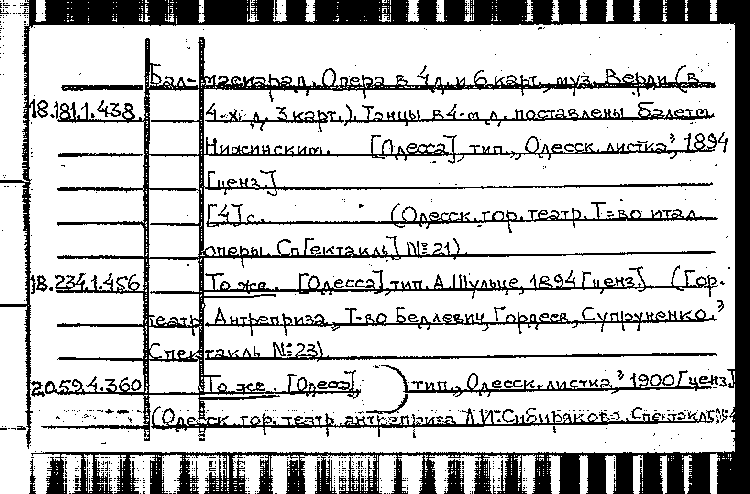 Бал-маскарад. Опера в 4 д. и 6 карт., муз. Верди (в
18.181.1.438. 4-х д, 3 карт.). Танцы в 4-м д. поставлены балетм.
Нижинским. [Одесса], тип. „Одесск. листка", 1894
[ценз.]
[4] с. (Одесск. гор. театр. Т-во итал.
оперы. Сп[ектакль] № 21)
18.234.1.456 То же. [Одесса], тип. А. Шульце, 1894 [ценз.] (Гор.
театр. Антреприза „Т-во Бедлевич, Гордеев, Супруненко."
Спектакль № 23).
20.59.4.360 То же. [Одесса], тип. „Одесск. листка," 1900 [ценз.]
(Одесск. гор. театр антреприза А.И. Сибирякова. Спектакль №